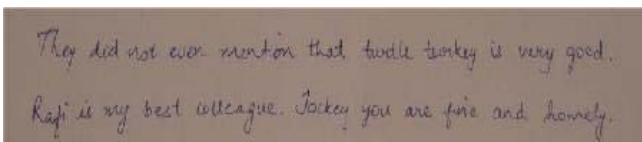 They did not even mention that turtle turkey is very good.
Rafi is my best colleague. Jockey you are fine and homely.